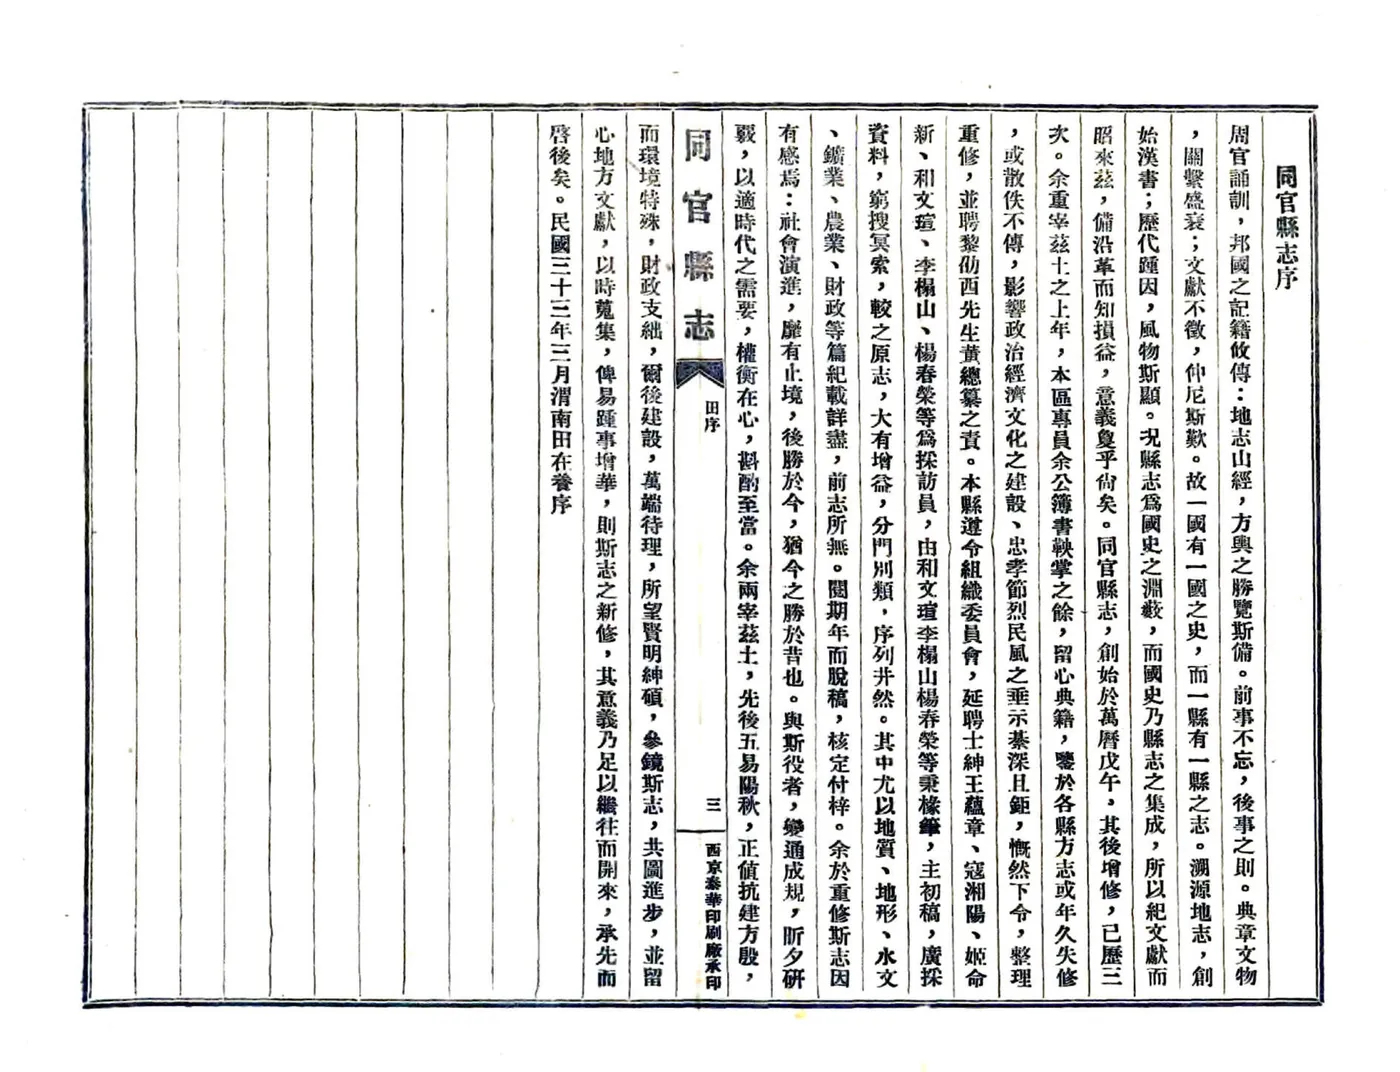 同官縣志序
周官誦訓，邦國之記籍攸傳：地志山經，方輿之勝覽斯備。前事不忘，後事之則。典章文物
，關繫盛衰；文獻不徵，仲尼斯歎。故一國有一國之史，而一縣有一縣之志。溯源地志，創
始漢書；歷代踵因，風物斯顯。况縣志爲國史之淵藪，而國史乃縣志之集成，所以紀文獻而
昭來茲，備沿革而知損益，意義敻乎尙矣。同官縣志，創始於萬曆戊午，其後增修，已歷三
次。余重宰茲土之上年，本區專員余公簿書鞅掌之餘，留心典籍，鑒於各縣方志或年久失修
，或散佚不傳，影響政治經濟文化之建設、忠孝節烈民風之垂示綦深且鉅，慨然下令，整理
重修，並聘黎劭西先生董總纂之責。本縣遵令組織委員會，延聘士紳王蘊章、寇湘陽、姬命
新、和文瑄、李榻山、楊春榮等爲採訪員，由和文瑄李榻山楊春榮等秉椽筆，主初稿，廣採
資料，窮搜冥索，較之原志，大有增益，分門別類，序列井然。其中尤以地質、地形、水文
、鑛業、農業、財政等篇紀載詳盡，前志所無。閱期年而脫稿，核定付梓。余於重修斯志因
有感焉：社會演進，靡有止境，後勝於今，猶今之勝於昔也。與斯役者，變通成規，昕夕研
覈，以適時代之需要，權衡在心，斟酌至當。余兩宰茲土，先後五易陽秋，正値抗建方殷，
同官縣志
田序
三
西京泰華印刷廠承印
而環境特殊，財政支絀，爾後建設，萬端待理，所望賢明紳碩，參鏡斯志，共圖進步，並留
心地方文獻，以時蒐集，俾易踵事增華，則斯志之新修，其意義乃足以繼往而開來，承先而
啓後矣。民國三十三年三月渭南田在養序